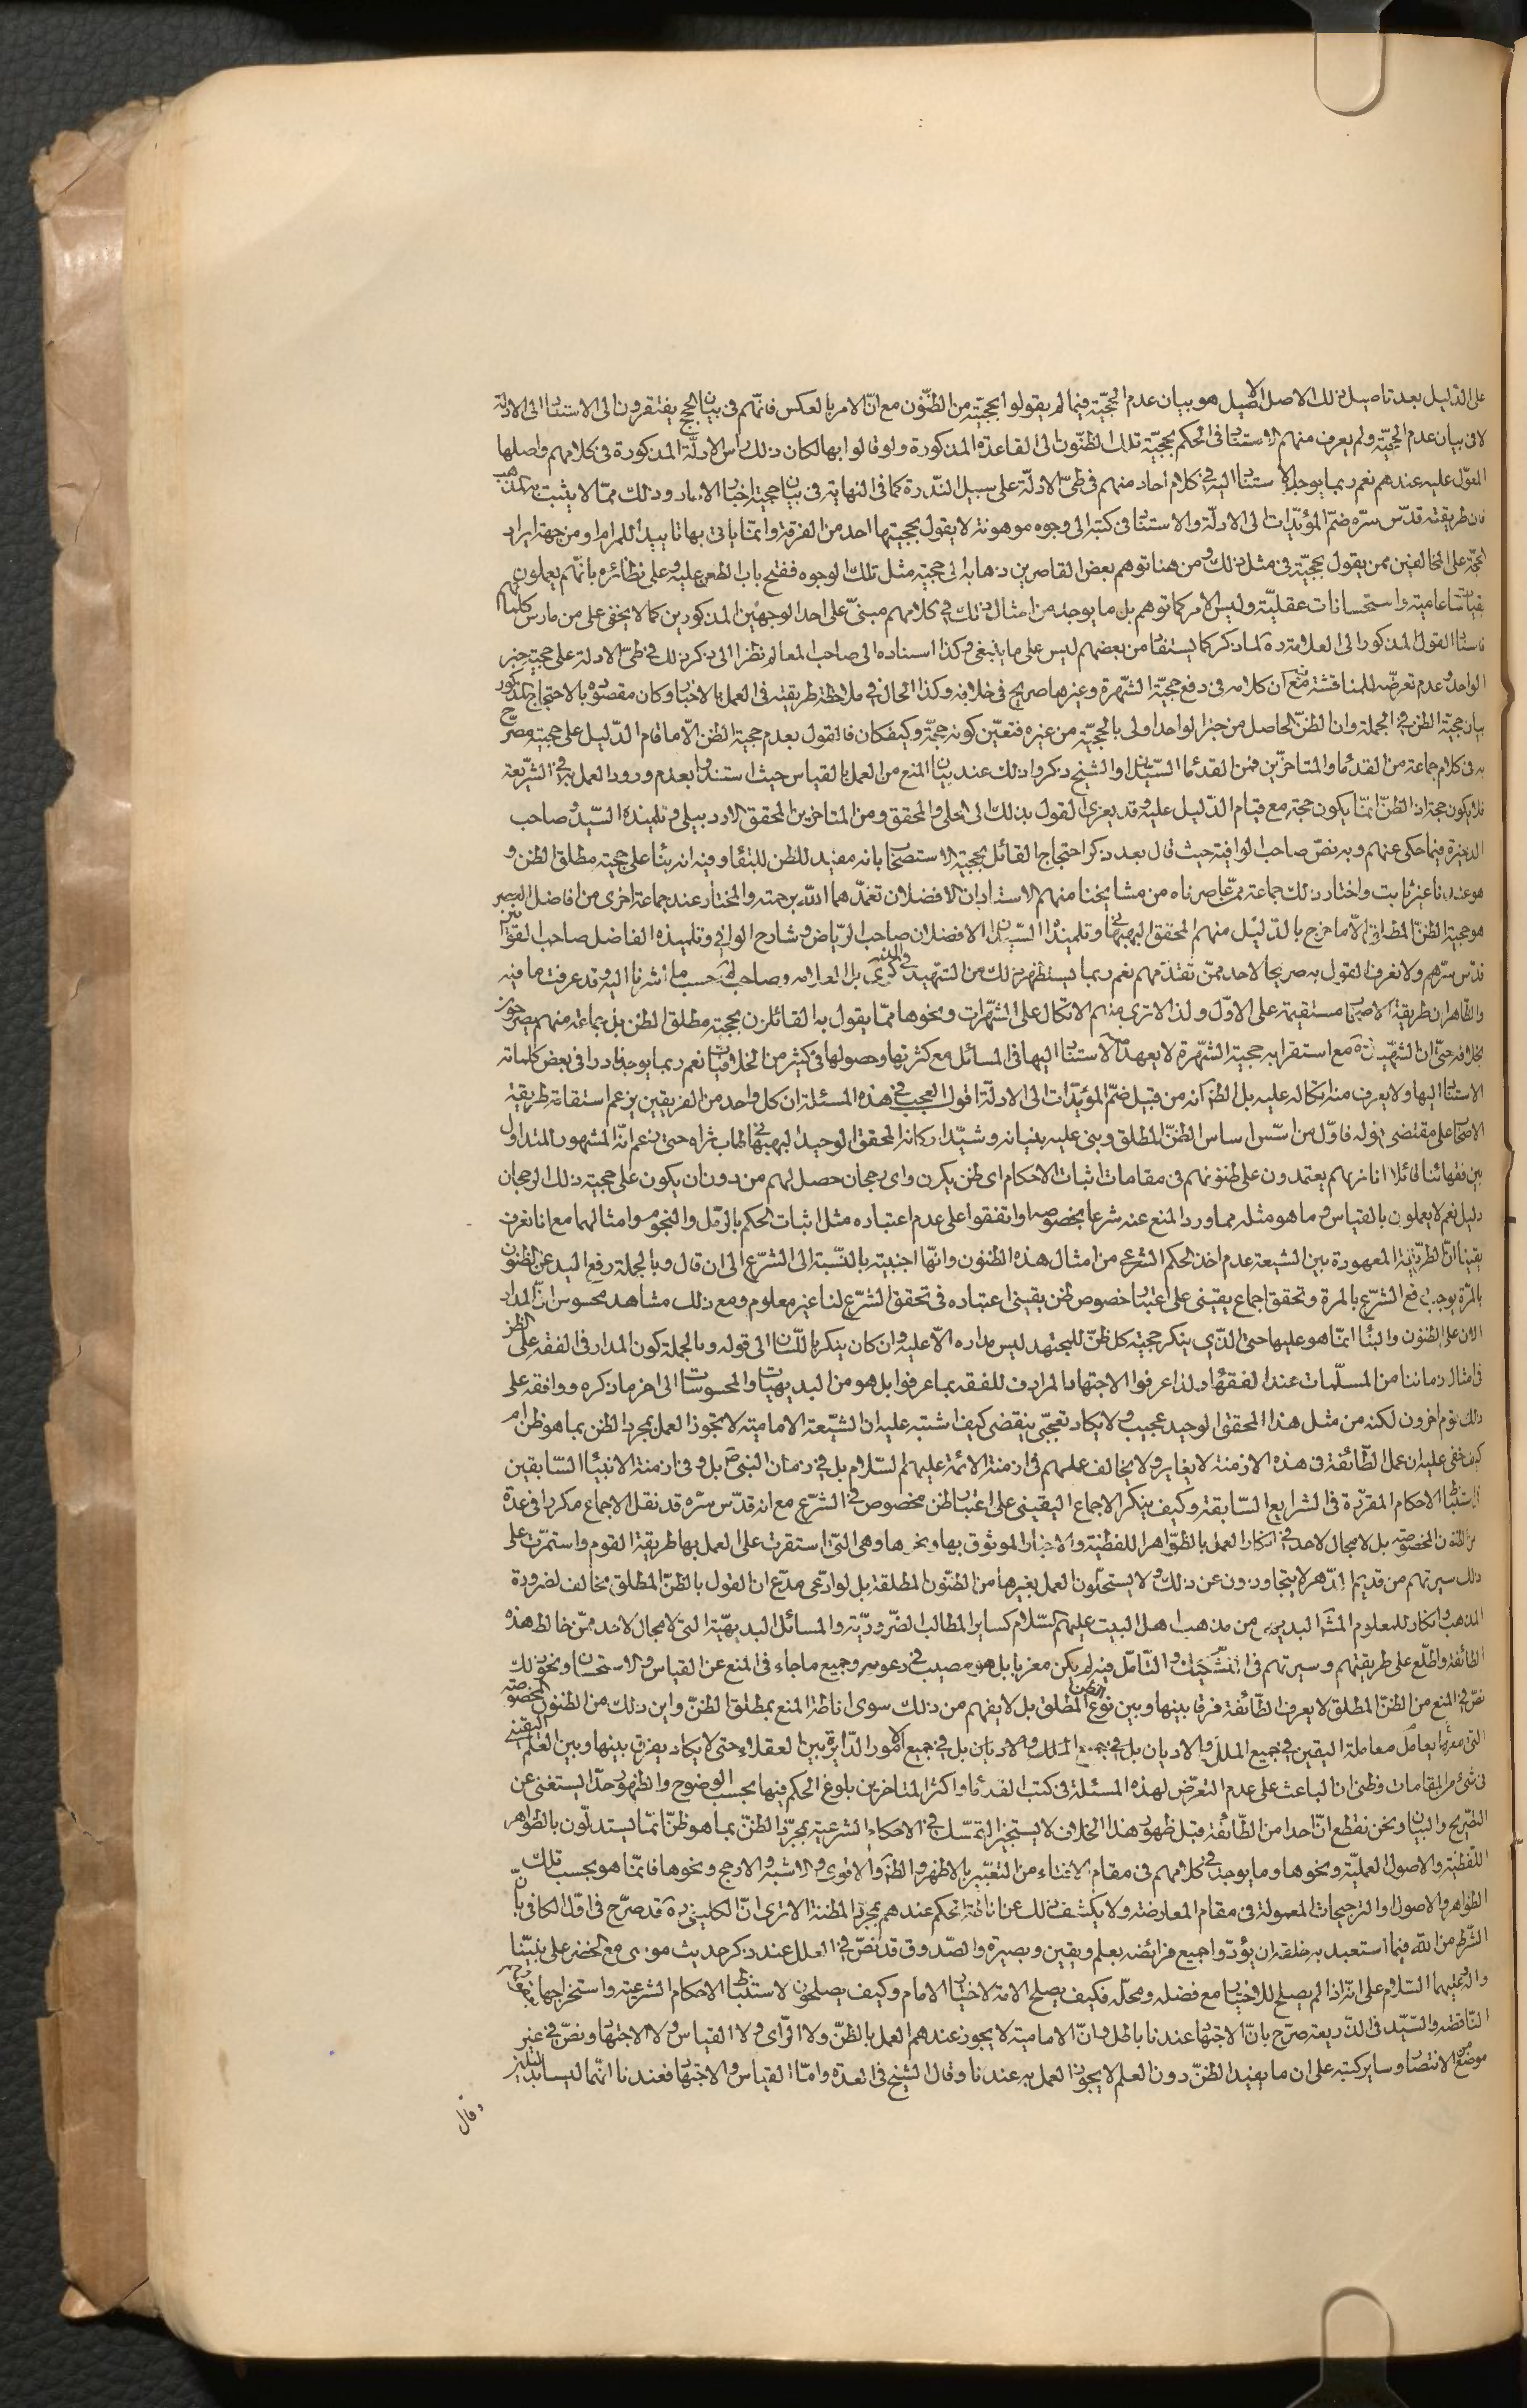 على الدليل بعد تاصيل ذلك الاصل الاصيل هو بيان عدم الحجيّة فيما لم يقولوا بحجيته من الظنّون مع انّ الامر بالعكس فانّهم فى بيان الحجج يفتقرون الى الاستناد الى الادلة
لا فى بيان عدم الحجيّة ولم يعرف منهم الاستناد فى الحكم بحجيّة تلك الظنّون الى القاعدة المذكورة ولو قالوا بها لكان ذلك راس الادلّة المذكورة فى كلامهم واصلها
المعوّل عليه عندهم نعم ربما يوجد الاستناد اليه فى كلام احاد منهم فى طىّ الادلّة على سبيل النّدرة كما فى النهاية فى بيان حجية اخبار الاحاد وذلك ممّا لا يثبت به المذهب
فان طريقته قدّس سرّه ضمّ المؤيّدات الى الادلّة والاستناد فى كتبه الى وجوه موهونة لا يقول بحجيتها احد من الفرقة وانّما ياتى بها تاييدا للمرام او من جهة ايراد
الحجّة على المخالفين ممن يقول بحجيّة فى مثل ذلك ومن هنا توهم بعض القاصرين ذهابه الى حجية مثل تلك الوجوه ففتح باب الطعن عليه وعلى نظائره بانّهم يعملون
بقياسات عامية واستحسانات عقليّة وليس الامر كما توهم بل ما يوجد من امثال ذلك فى كلامهم مبنىّ على احد الوجهين المذكورين كما لا يخفى على من مارس كلماتهم
فاسناد القول المذكور الى العلامة ره لما ذكر كما يستفاد من بعضهم ليس على ما ينبغى وكذا اسناده الى صاحب المعالم نظرا الى ذكر ذلك فى طىّ الادلة على حجية خبر
الواحد وعدم تعرضه للمناقشة فيه مع ان كلامه فى دفع حجيّة الشّهرة وغيرها صريح فى خلافه وكذا الحال فى ملاحظة طريقته فى العمل بالاخبار وكان مقصوده بالاحتجاج المذكور
بيان حجيّة الظن فى الجملة وان الظنّ الحاصل من خبر الواحد اولى بالحجيّة من غيره فتعيّن كونه حجّة وكيف كان فالقول بعدم حجية الظن الّا ما قام الدّليل على حجيته مصرّح
به فى كلام جماعة من القدماء والمتاخرّين فمن القدماء السّيدان والشيخ ذكروا ذلك عند بيان المنع من العمل بالقياس حيث استندوا بعدم ورود العمل به فى الشّريعة
فلا يكون حجة اذ الظنّ انمّا يكون حجة مع قيام الدّليل عليه وقد يعزى القول بذلك الى الحلى والمحقق ومن المتاخرين المحقق الاردبيلى وتلميذه السّيد وصاحب
الذخيرة فيما حكى عنهم وبه نصّ صاحب الوافية حيث قال بعد ذكر احتجاج القائل بحجية الاستصحاب بانه مفيد للظن للبقاء وفيه انه بناء على حجية مطلق الظن و
هو عندنا غير ثابت واختار ذلك جماعة ممّن عاصرناه من مشايخنا منهم الاستادان الافضلان تغمدّهما اللّه برحمته والمختار عند جماعة اخرى من افاضل العصر
هو حجية الظنّ المطلق الّا ما خرج بالدّليل منهم المحقق البهبهانى وتلميذاه السّيدان الافضلان صاحب الرّياض وشارح الوافى وتلميذه الفاضل صاحب القوانين
قدّس سرّهم ولا نعرف القول به صريحا لاحد ممّن تقدّمهم نعم ربما يستظهر ذلك من الشّهيد فى كرى بل العلامه وصاحب لم حسب ما اشرنا اليه وقد عرفت ما فيه
والظّاهر ان طريقة الاصحاب مستقيمة على الاوّل ولذا لا ترى منهم الاتكال على الشّهرات ونحوها ممّا يقول به القائلون بحجية مطلق الظن بل جماعة منهم يصرحون
بخلافه حتّى ان الشّهيد ره مع استقرابه حجية الشّهرة لا يعهد منه الاستناد اليها فى المسائل مع كثرتها وحصولها فى كثير من الخلافيات نعم ربما يوجد نادرا فى بعض كلماته
الاستناد اليها ولا يعرف منه اتكاله عليه بل الظ انه من قبيل ضمّ المؤيّدات الى الادلّة اقول العجب فى هذه المسئلة ان كل واحد من الفريقين يزعم استقامة طريقة
الاصحاب على مقتضى قوله فاوّل من اسّس اساس الظنّ المطلق وبنى عليه بنيانه وشيّد اركانه المحقق الوحيد البهبهانى طاب ثراه حتى زعم انّه المشهور المتداول
بين فقهائنا قائلا انا نريهم يعتمدون على ظنونهم فى مقامات اثبات الاحكام اى ظن يكون واى رجحان حصل لهم من دون ان يكون على حجية ذلك الرجحان
دليل نعم لا يعملون بالقياس وما هو مثله مما ورد المنع عنه شرعا بخصوصه او اتفقوا على عدم اعتباره مثل اثبات الحكم بالرّمل والنجوم وامثالهما مع انا نعرف
يقينا انّ الطريقة المعهودة بين الشيعة عدم اخذ الحكم الشرعى من امثال هذه الظنون وانّها اجنبية بالنّسبة الى الشرّع الى ان قال وبالجملة رفع اليد عن الظنون
بالمرّة يوجب رفع الشرّع بالمرة وتحقق اجماع يقينى على اعتبار خصوص ظن يقينى اعتباره فى تحقق الشرّع لنا غير معلوم ومع ذلك مشاهد محسوس ان المدار
الان على الظنون والبناء انمّا هو عليها حتى الذّى ينكر حجية كل ظنّ للمجتهد ليس مداره الّا عليه وان كان ينكر باللّسان الى قوله وبالجملة كون المدار فى الفقه على الظن
فى امثال زماننا من المسلّمات عند الفقهاء ولذا عرفوا الاجتهاد المرادف للفقه بما عرفوا بل هو من البديهيات والمحسوسات الى اخر ما ذكره ووافقه على
ذلك قوم اخرون لكنه من مثل هذا المحقق الوحيد عجيب ولا يكاد تعجّبى ينقضى كيف اشتبه عليه ان الشّيعة الامامية لا تجوز العمل بمجرد الظن بما هو ظن ام
كيف خفى عليه ان عمل الطّائفة فى هذه الازمنة لا يغاير ولا يخالف عملهم فى ازمنة الائمة عليهم السّلام بل فى زمان النبى ص بل وفى ازمنة الانبياء السّابقين
فى استنباط الاحكام المقرّرة فى الشرايع السّابقة وكيف ينكر الاجماع اليقينى على اعتبار ظن مخصوص فى الشرّع مع انه قدّس سرّه قد نقل الاجماع مكررا فى عدّة
من الظنون المخصوصة بل لا مجال لاحد فى انكار العمل بالظّواهر اللفظية والاخبار الموثوق بها ونحوها وهى التّى استقرت على العمل بها طريقة القوم واستمرّت على
ذلك سيرتهم من قديم الدّهر لا يتجاوزون عن ذلك ولا يستحلّون العمل بغيرها من الظنّون المطلقة بل لو ادّعى مدّع ان القول بالظنّ المطلق مخالف لضرورة
المذهب وانكار للمعلوم البديهى من مذهب اهل البيت عليهم السّلام كساير المطالب الضّروريّة والمسائل البديهيّة التى لا مجال لاحد ممّن خالط هذه
الطائفة واطّلع على طريقتهم وسيرتهم فى والتامّل فيه لم يكن مغربا بل هو مصيب فى دعوىه وجميع ما جاء فى المنع عن القياس والاستحسان ونحو ذلك
نصّ فى المنع من الظنّ المطلق لا يعرف الطّائفة فرقا بينها وبين نوع الظن المطلق بل لا يفهم من ذلك سوى اناطة المنع بمطلق الظنّ واين ذلك من الظنون المخصوصة
التى يعامل معاملة اليقين فى جميع الملل والاديان بل فى جميع الملك والاديان بل فى جميع الامور الدّايرة بين العقلاء حتى لا يكاد يفرق بينها وبين العلم اليقينى
فى شئ من المقامات وظنى ان الباعث على عدم التعرّض لهذه المسئلة فى كتب القدماء واكثر المتاخرين بلوغ الحكم فيها بحسب الوضوح والظهور حدّا يستغنى عن
التصّريح والبيان ونحن نقطع انّ احدا من الطّائفة قبل ظهور هذا الخلاف لا يستجيز التمسّك فى الاحكام الشرعية بمجرّد الظنّ بما هو ظنّ انمّا يستدلّون بالظواهر
اللّفظية والاصول العمليّة ونحوها وما يوجد فى كلامهم فى مقام الافتاء من التعبّير بالاظهر والظ والاقوى والاشبه والارجح ونحوها فانمّا هو بحسب تلك
الظواهر والاصول والترجيحات المعمولة فى مقام المعارضة ولا يكشف ذلك عن اناطة الحكم عندهم بمجرّد المظنة الا ترى انّ الكلينى ره قد صرّح فى اوّل الكافى بانّ
الشّرط من اللّه فيما استعبد به خلقه ان يؤدّوا جميع فرائضه بعلم ويقين وبصيرة والصّدوق قد نصّ فى العلل عند ذكر حديث موسى مع الخضر على نبيّنا
واله وعليهما السّلام على انّه اذا لم يصلح للاختيار مع فضله ومحلّه فكيف يصلح الامة لاختيار الامام وكيف يصلحون لاستنباط الاحكام الشرعية واستخراجها بعقولهم
النّاقصة والسّيّد فى الذّريعة صرّح بانّ الاجتهاد عندنا باطل وانّ الامامية لا يجوز عندهم العمل بالظنّ ولا الرّاى ولا القياس ولا الاجتهاد ونصّ فى غير
موضع من الانتصار وساير كتبه على ان ما يفيد الظنّ دون العلم لا يجوز العمل به عندنا وقال الشيخ فى العدة وامّا القياس والاجتهاد فعندنا انّهما ليسا بدليلين
وقال